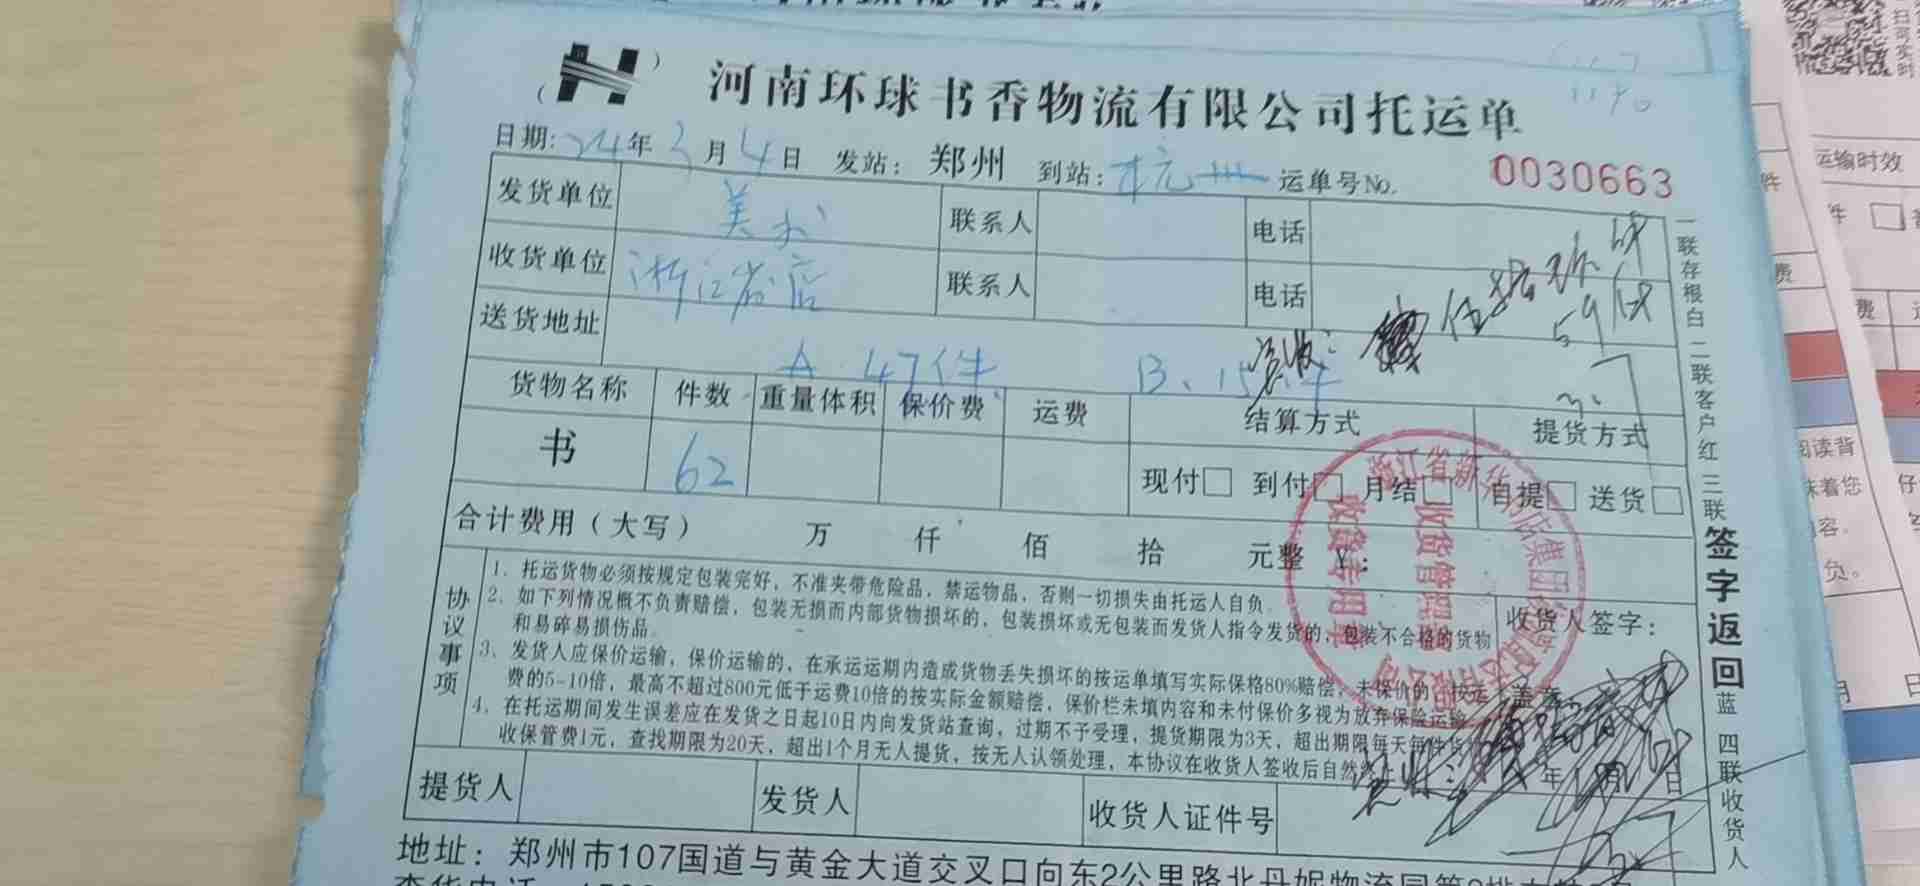 河南环球书香物流有限公司托运单
日期: 24年3月4日 发站: 郑州 到站: 杭州 运单号No. 0030663
发货单位 美术 联系人 电话
收货单位 浙江省店 联系人 电话
送货地址
A.47件 B、15件
货物名称 件数 重量体积 保价费 运费 结算方式 提货方式
书 62 现付□ 到付□ 月结□ 自提□ 送货□
合计费用(大写) 万 仟 佰 拾 元整 ¥:
协议事项
1. 托运货物必须按规定包装完好,不准夹带危险品,禁运物品,否则一切损失由托运人自负
2. 如下列情况概不负责赔偿,包装无损而内部货物损坏的,包装损坏或无包装而发货人指令发货的,包装不合格的货物
和易碎易损伤品
3. 发货人应保价运输,保价运输的,在承运运期内造成货物丢失损坏的按运单填写实际保格80%赔偿,未保价的,按运
费的5-10倍,最高不超过800元低于运费10倍的按实际金额赔偿,保价栏未填内容和未付保价多视为放弃保险运输
4. 在托运期间发生误差应在发货之日起10日内向发货站查询,过期不予受理,提货期限为3天,超出期限每天每件货
收保管费1元,查找期限为20天,超出1个月无人提货,按无人认领处理,本协议在收货人签收后自然
收货人签字:
盖章
年 月 日
收货管理
收货专用章
提货人 发货人 收货人证件号
一联存根白 二联客户红 三联签字返回蓝 四联收货人
地址: 郑州市107国道与黄金大道交叉口向东2公里路北丹妮物流园
扫可实时
运输时效